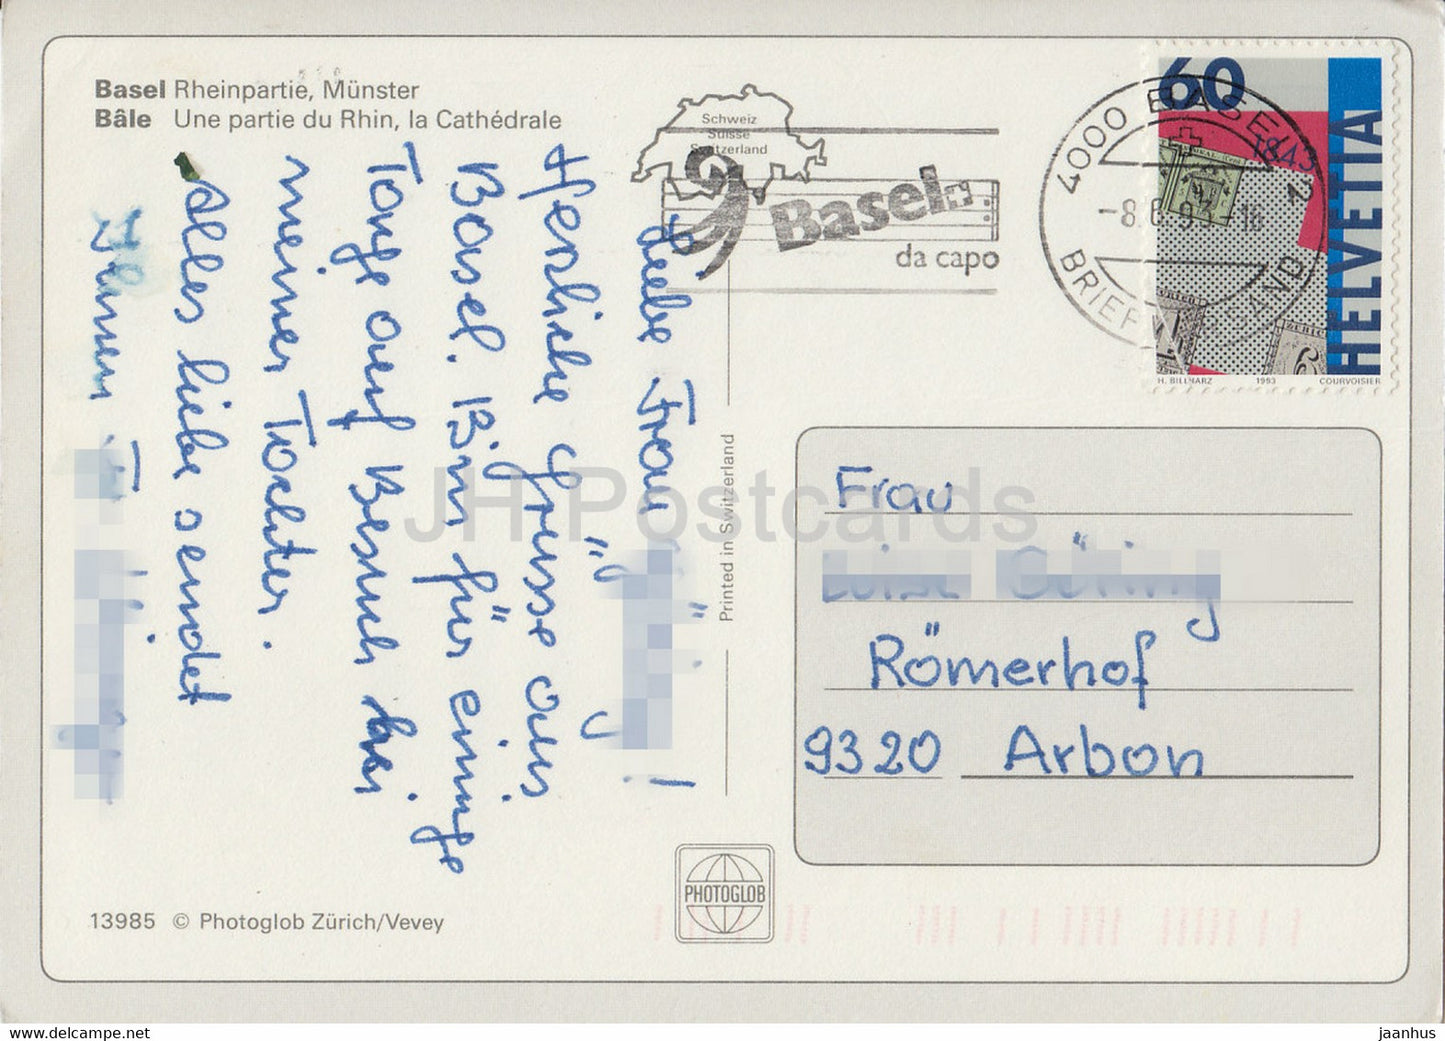 Basel Rheinpartie, Münster
Bâle Une partie du Rhin, la Cathédrale
Schweiz
Suisse
Switzerland
Basel
da capo
4000 BASEL 2
BRIEFVERSAND
60
1843
HELVETIA
H. BILLHARZ 1993 COURVOISIER
Liebe Frau
Herzliche Grüsse aus
Basel. Bin für einige
Tage auf Besuch bei
meiner Tochter.
Alles liebe sendet
Ihnen
Printed in Switzerland
Frau
Römerhof
9320 Arbon
PHOTOGLOB
13985 © Photoglob Zürich/Vevey
JH Postcards
www.delcampe.net
jaanhus